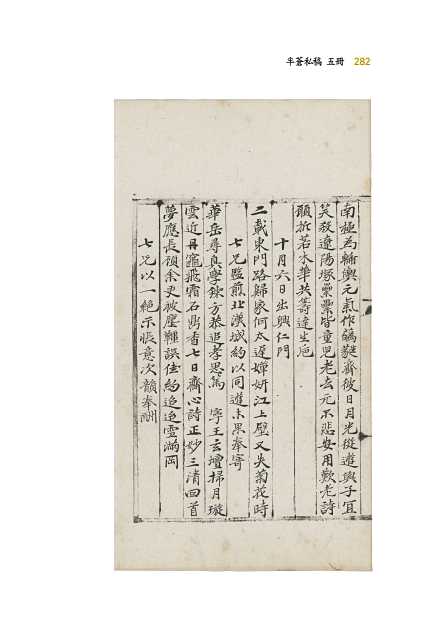 半蒼私稿 五冊 282
南極為輈輿元氣作縞蕤齊彼日月光從遊與子宜
笑殺遼陽塚纍纍皆童兒老去元不悲安用歎老詩
願折若木華共籌達生巵
十月六日出興仁門
二載東門路歸家何太遲嬋姸江上壁又失菊花時
七兄監煎北漢城約以同遊未果奉寄
華岳尋真學鍊方恭追孝思篤 寧王玄壇掃月璇
雲近丹竈飛霜石鼎香七日齋心詩正妙三清回首
夢應長頎余更被塵鞿誤佳約迢迢雪滿岡
七兄以一絶示悵意次韻奉酬